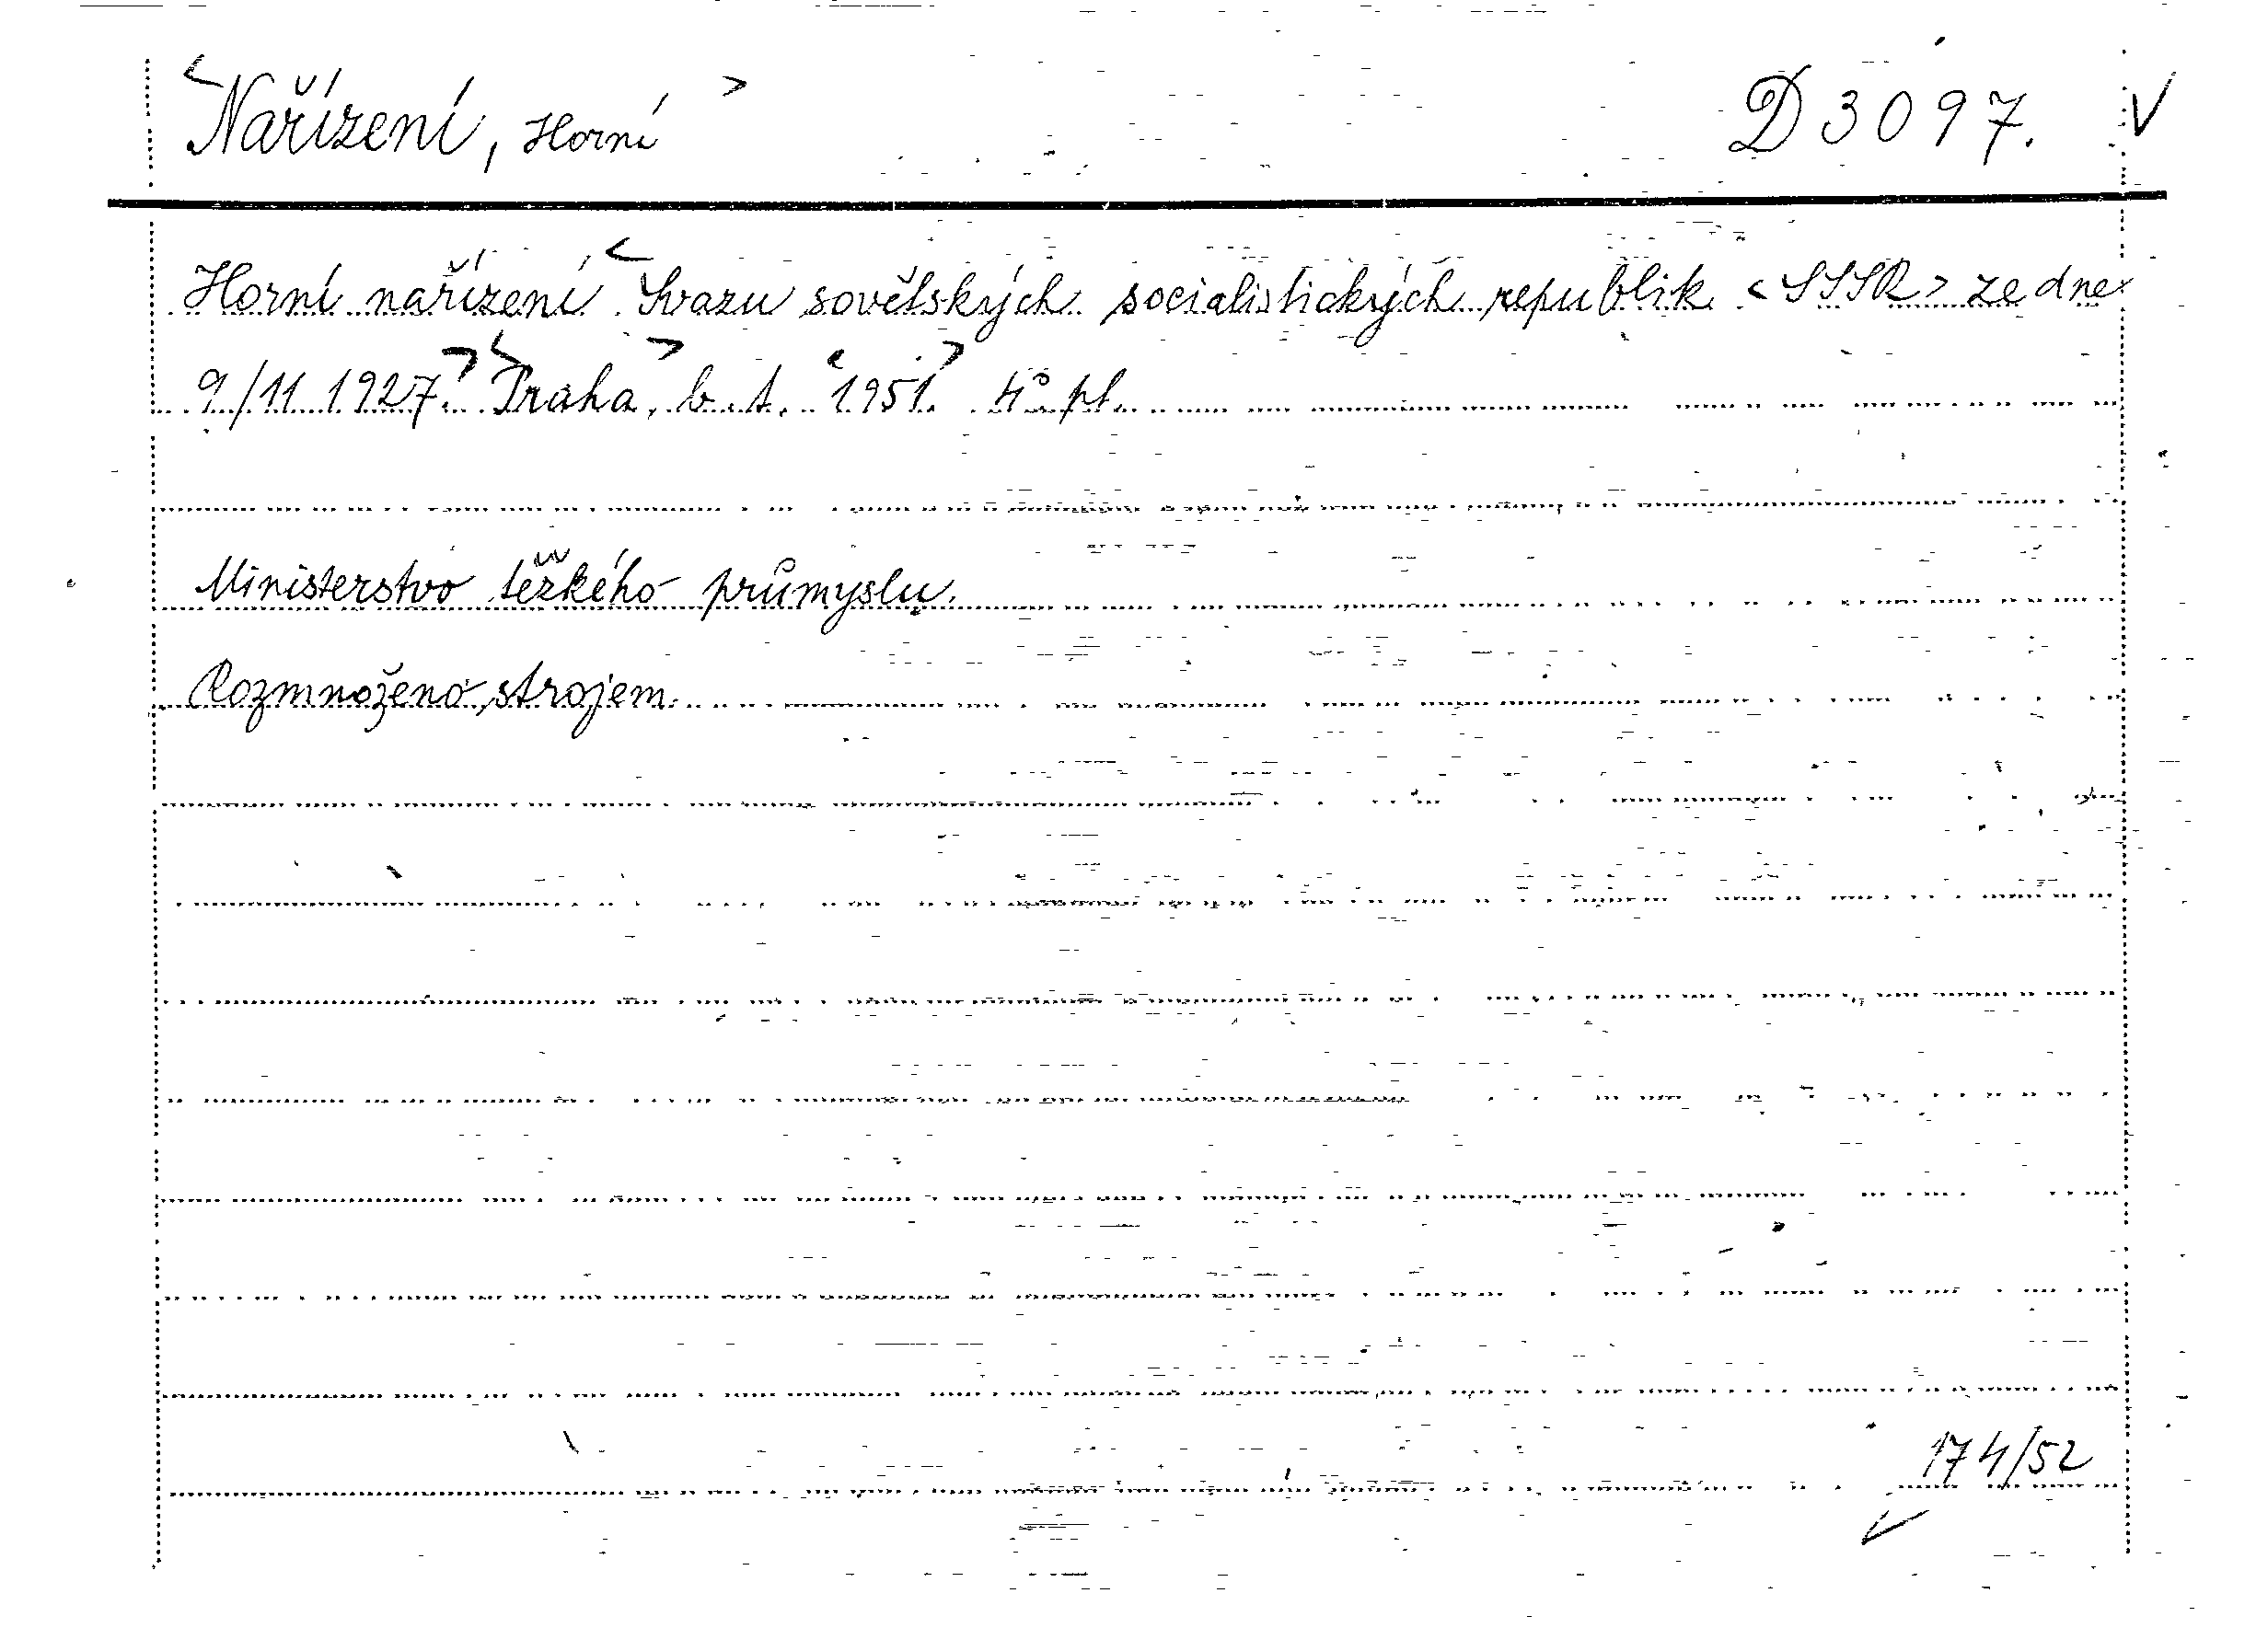 <Nařízení, Horní> D 3097. √
Horní nařízení <Svazu sovětských socialistických republik <SSSR> ze dne
9/11 1927.> <Praha,> b. t. <1951.> 4° pl.
Ministerstvo těžkého průmyslu.
Rozmnoženo strojem.
174/52
√